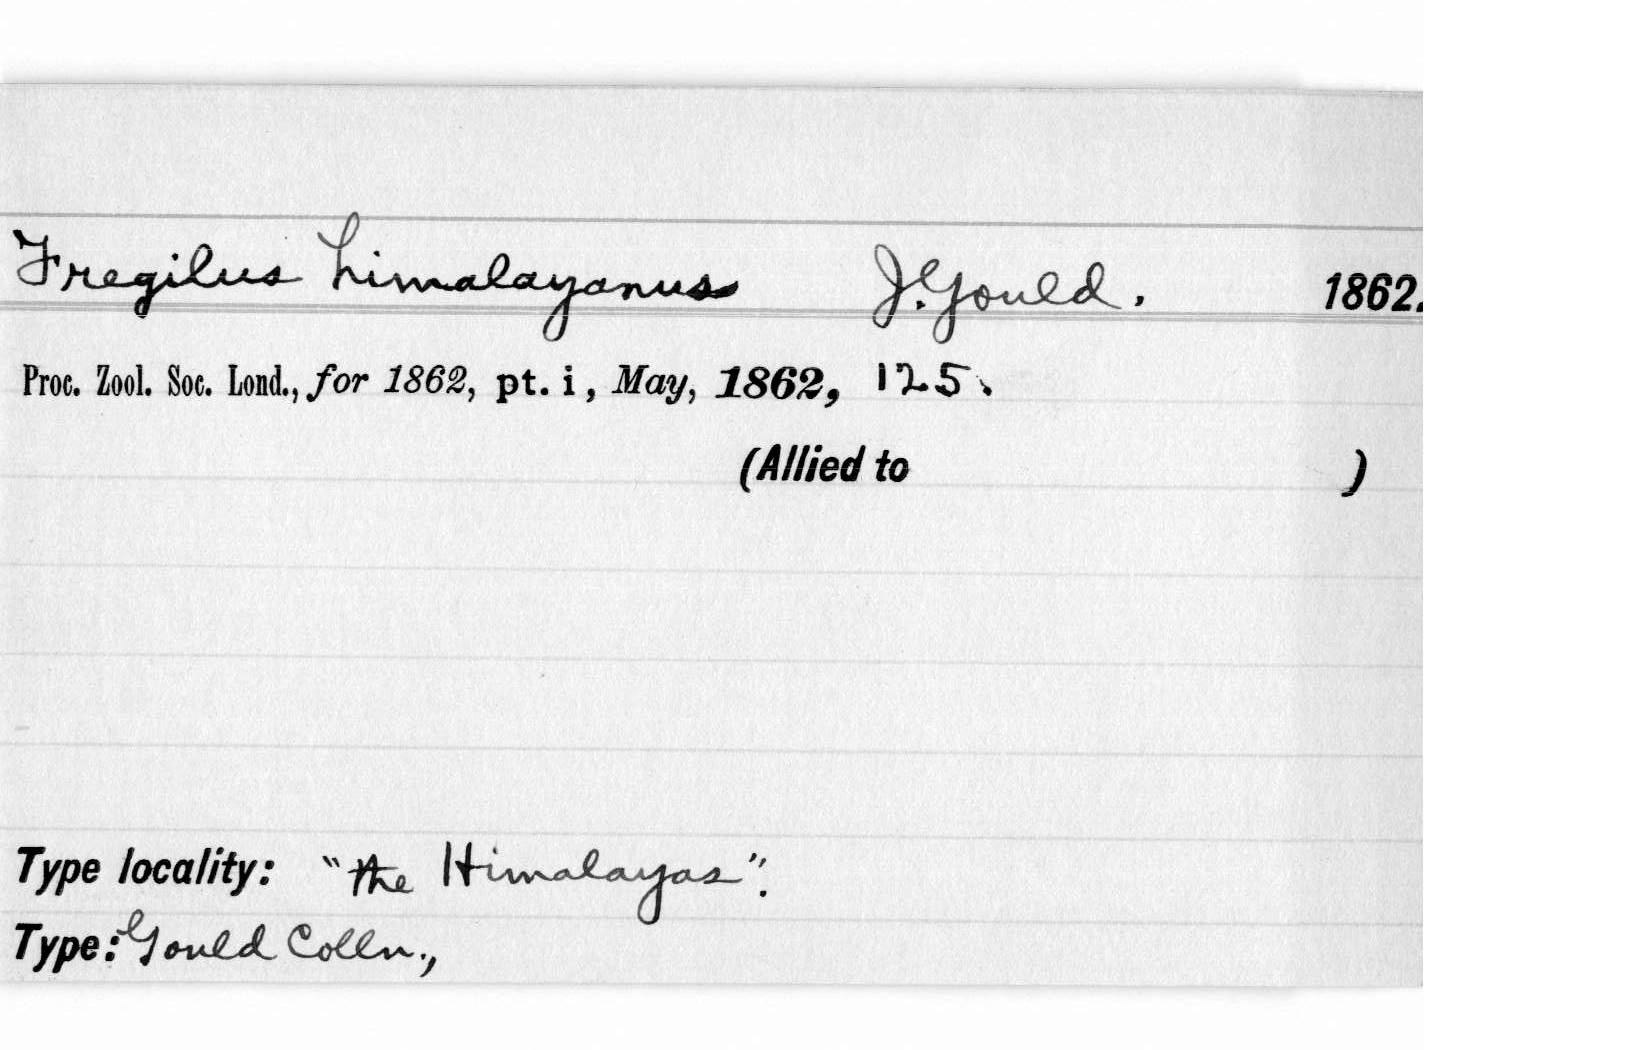 Fregilus himalayanus J. Gould. 1862.
Proc. Zool. Soc. Lond., for 1862, pt. i, May, 1862, 125.
(Allied to )
Type locality: "the Himalayas".
Type: Gould Colln.,